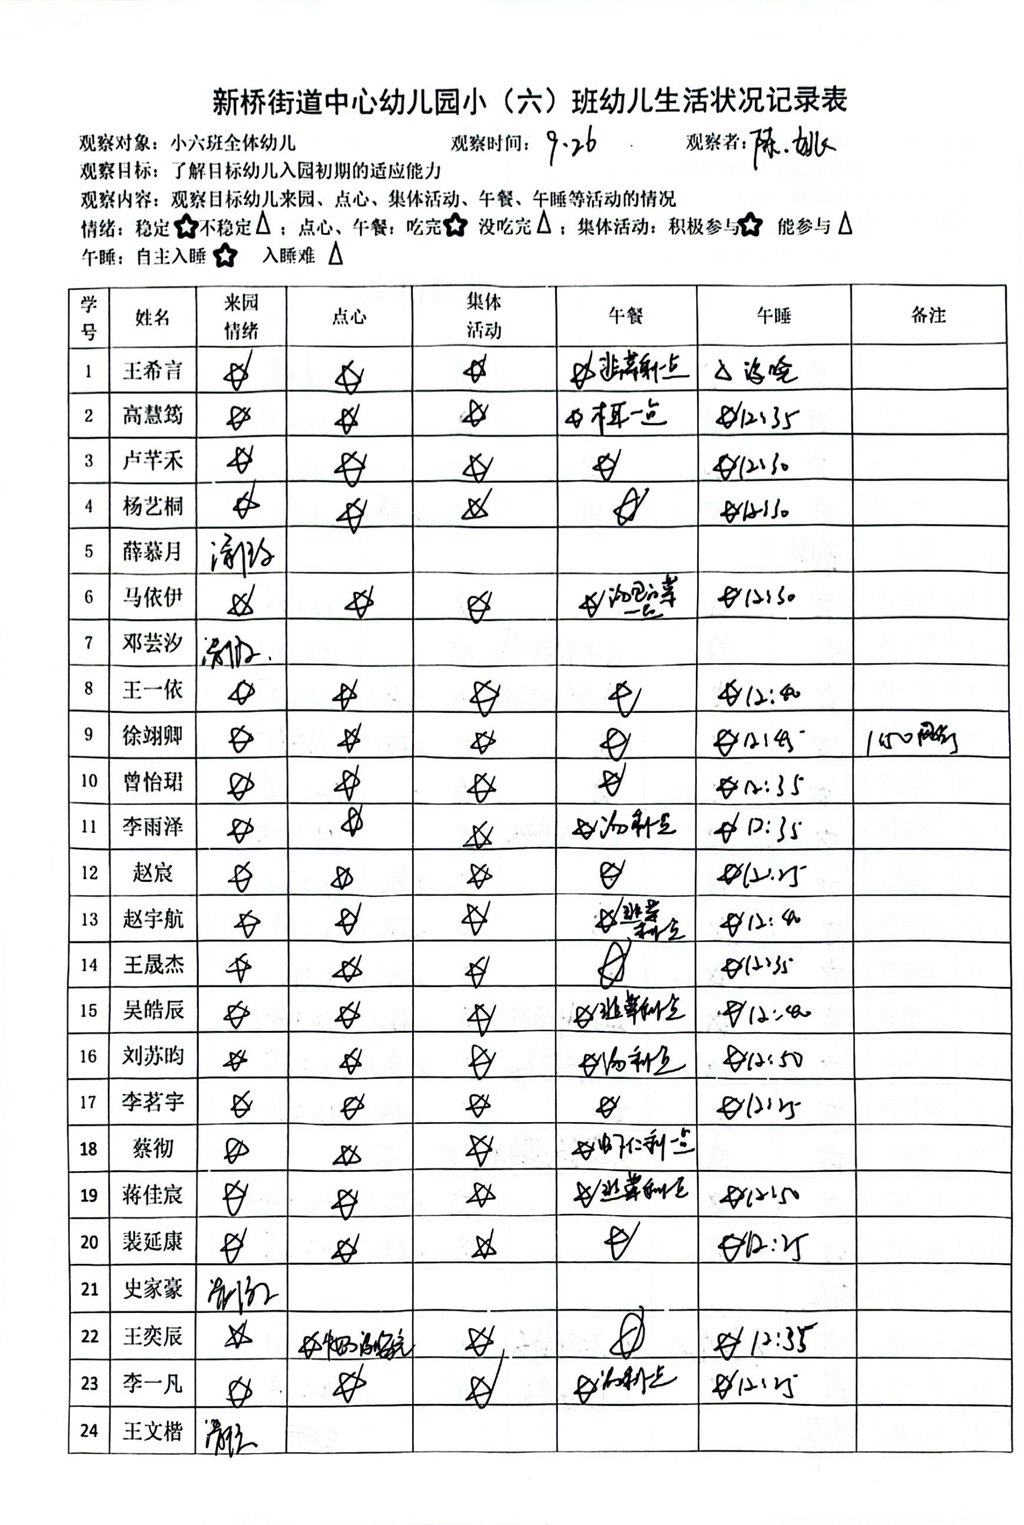 新桥街道中心幼儿园小（六）班幼儿生活状况记录表
观察对象：小六班全体幼儿 观察时间：9.26 观察者：陈、姚
观察目标：了解目标幼儿入园初期的适应能力
观察内容：观察目标幼儿来园、点心、集体活动、午餐、午睡等活动的情况
情绪：稳定☆不稳定△；点心、午餐：吃完☆ 没吃完△；集体活动：积极参与☆ 能参与△
午睡：自主入睡☆ 入睡难 △
学号 姓名 来园情绪 点心 集体活动 午餐 午睡 备注
1 王希言 ☆ ☆ ☆ ☆韭菜剩一点 △ 没睡
2 高慧筠 ☆ ☆ ☆ ☆木耳一点 ☆12:35
3 卢芊禾 ☆ ☆ ☆ ☆ ☆12:30
4 杨艺桐 ☆ ☆ ☆ ☆ ☆12:30
5 薛慕月 请假
6 马依伊 ☆ ☆ ☆ ☆ 一点 ☆12:30
7 邓芸汐 请假
8 王一依 ☆ ☆ ☆ ☆ ☆12:40
9 徐翊卿 ☆ ☆ ☆ ☆ ☆12:45
10 曾怡珺 ☆ ☆ ☆ ☆ ☆12:35
11 李雨泽 ☆ ☆ ☆ ☆汤剩一点 ☆12:35
12 赵宸 ☆ ☆ ☆ ☆ ☆12:25
13 赵宇航 ☆ ☆ ☆ ☆韭菜剩一点 ☆12:40
14 王晟杰 ☆ ☆ ☆ ☆ ☆12:35
15 吴皓辰 ☆ ☆ ☆ ☆韭菜剩一点 ☆12:40
16 刘苏昀 ☆ ☆ ☆ ☆汤剩一点 ☆12:50
17 李茗宇 ☆ ☆ ☆ ☆ ☆12:25
18 蔡彻 ☆ ☆ ☆ ☆虾仁剩一点
19 蒋佳宸 ☆ ☆ ☆ ☆韭菜剩一点 ☆12:50
20 裴延康 ☆ ☆ ☆ ☆ ☆12:25
21 史家豪 请假
22 王奕辰 ☆ ☆牛奶没喝完 ☆ ☆ ☆12:35
23 李一凡 ☆ ☆ ☆ ☆汤剩一点 ☆12:25
24 王文楷 请假